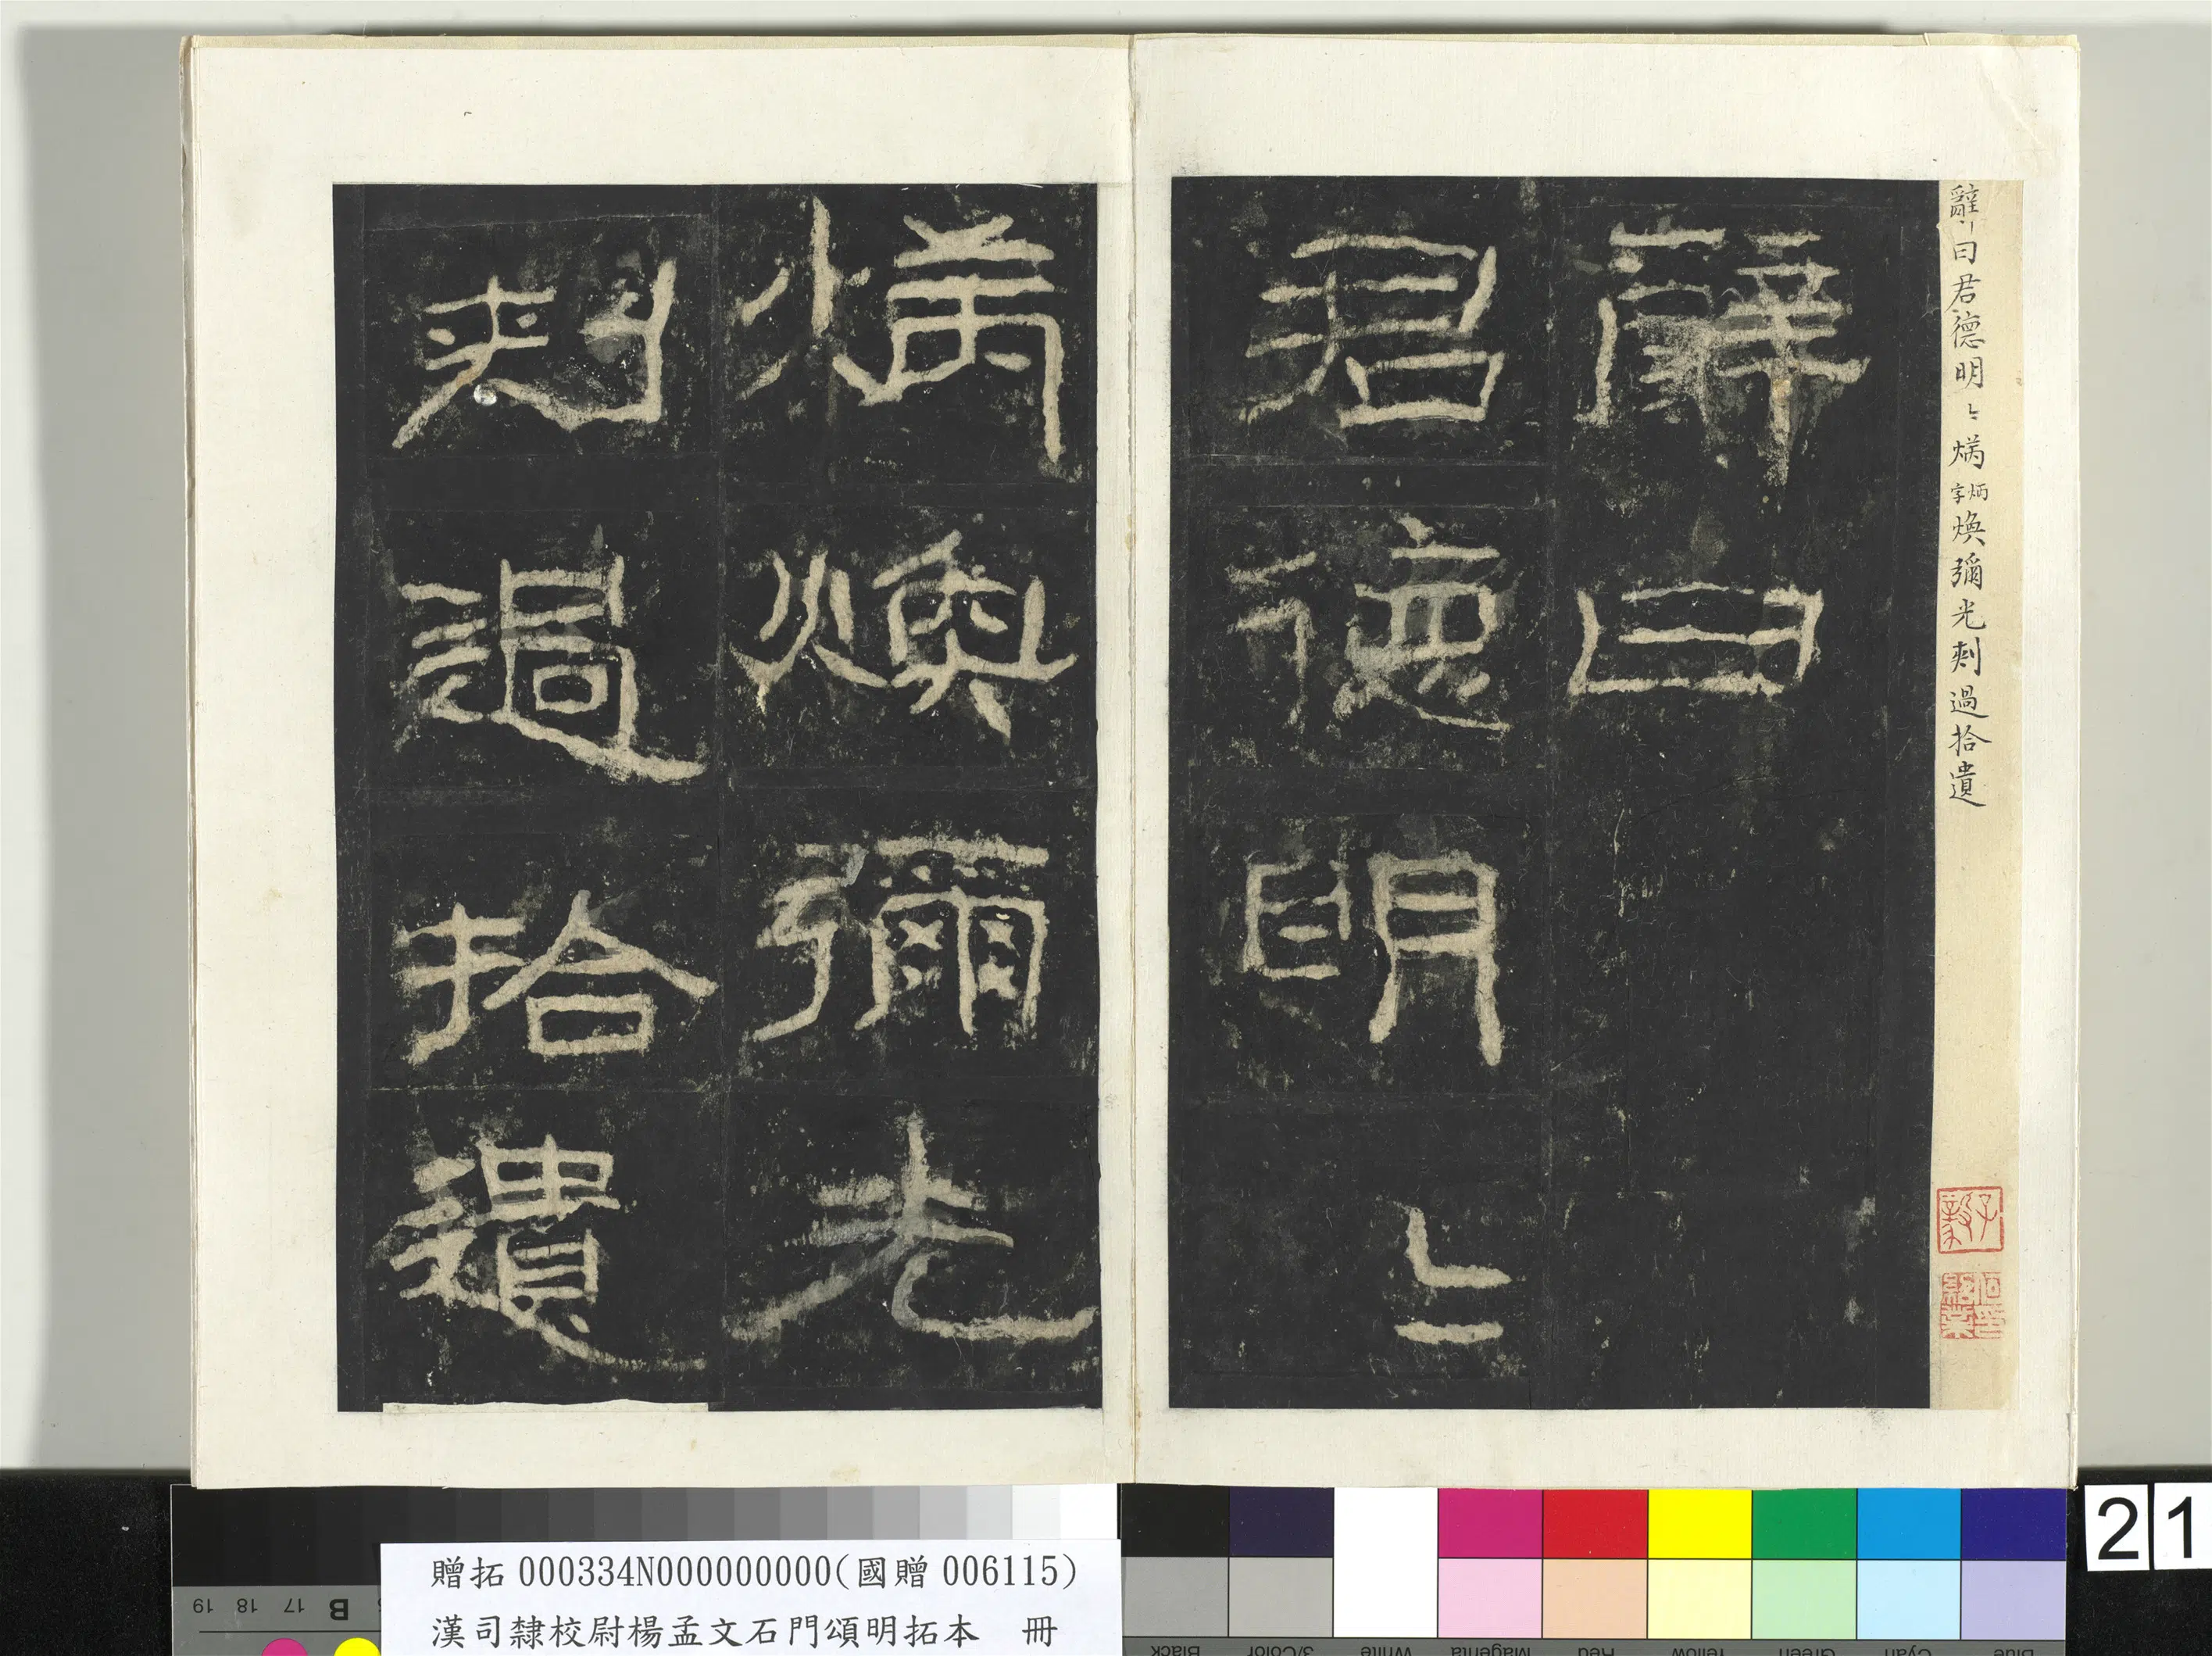 辭曰君德明〻㶷炳字煥彌光刺過拾遺
辭曰
君德明〻
㶷煥彌光
刺過拾遺
子毅
21
贈拓 000334N000000000(國贈 006115)
漢司隸校尉楊孟文石門頌明拓本 冊
19 18 17 B
Black 3/Color White Magenta Red Yellow Green Cyan Blue